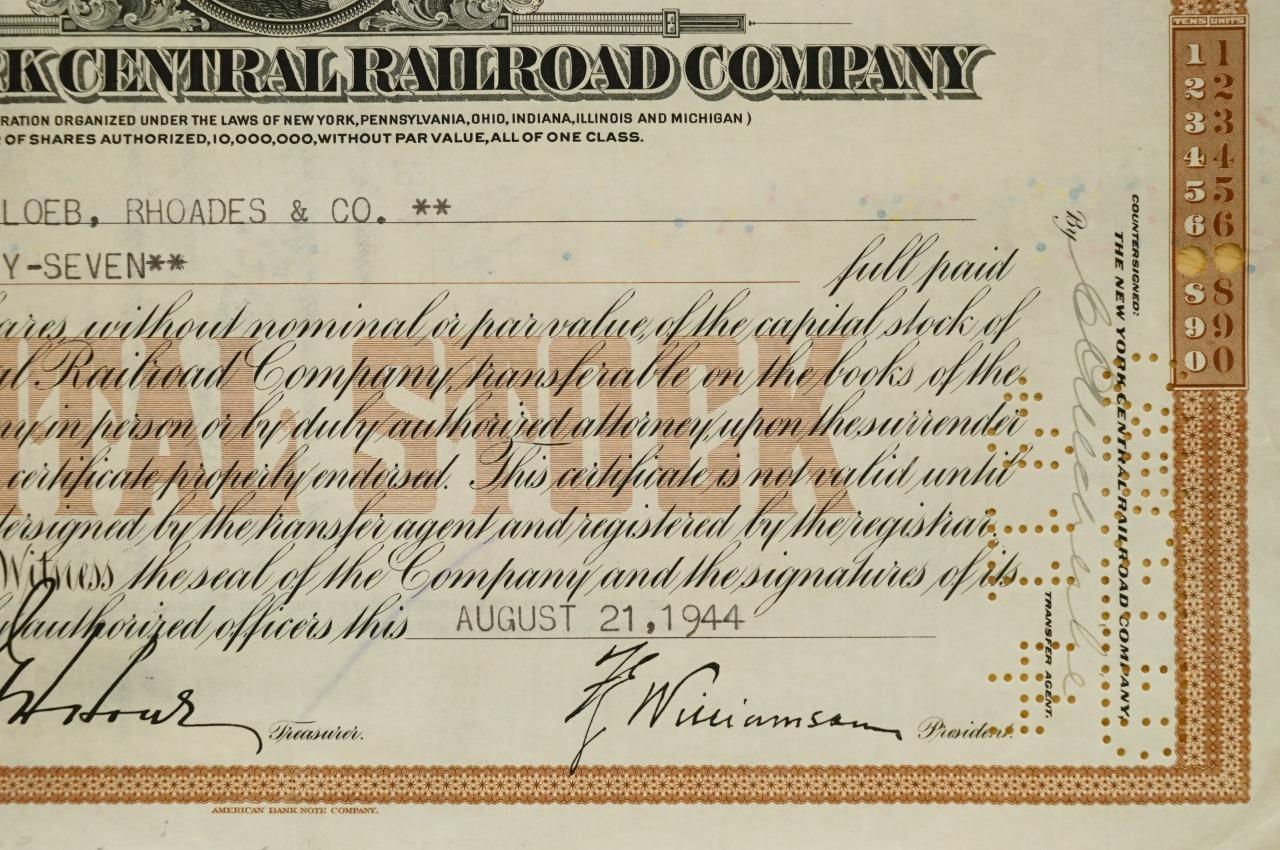 K CENTRAL RAILROAD COMPANY
RATION ORGANIZED UNDER THE LAWS OF NEW YORK, PENNSYLVANIA, OHIO, INDIANA, ILLINOIS AND MICHIGAN)
OF SHARES AUTHORIZED, 10,000,000, WITHOUT PAR VALUE, ALL OF ONE CLASS.
LOEB, RHOADES & CO. **
Y-SEVEN**
full paid
ares without nominal or par value, of the capital stock of
al Railroad Company, transferable on the books of the
ny in person or by duly authorized attorney upon the surrender
certificate properly endorsed. This certificate is not valid until
ersigned by the transfer agent and registered by the registrar.
Witness the seal of the Company and the signatures of its
authorized officers this AUGUST 21, 1944
Treasurer.
F E Williamson President.
AMERICAN BANK NOTE COMPANY.
ITAL STOCK
COUNTERSIGNED:
THE NEW YORK CENTRAL RAILROAD COMPANY,
By
TRANSFER AGENT.
TENS UNITS
1 1
2 2
3 3
4 4
5 5
6 6
8 8
9 9
0 0